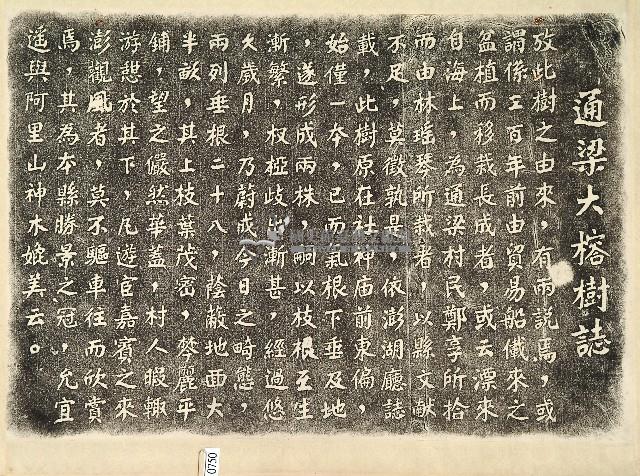 通梁大榕樹誌
攷此樹之由來，有兩說焉，或
謂係三百年前由貿易船儎來之
盆植而移栽長成者，或云漂來
自海上，為通梁村民鄭享所拾
而由林瑤琴所栽者，以縣文獻
不足，莫徵孰是，依澎湖廳誌
載，此樹原在社神庙前東偏，
始僅一本，已而氣根下垂及地
，遂形成兩株，嗣以枝根互生
漸繁，杈椏歧出漸甚，經過悠
久歲月，乃蔚成今日之畸態，
兩列垂根二十八，蔭蔽地西大
半畝，其上枝葉茂密，棽麗平
鋪，望之儼然華蓋，村人暇輙
游憩於其下，凡遊宦嘉賓之來
澎觀風者，莫不驅車往而欣賞
焉，其為本縣勝景之冠，允宜
遙與阿里山神木媲美云。
0750